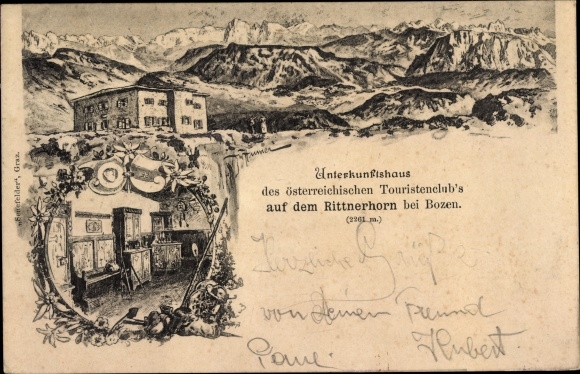 Unterkunftshaus
des österreichischen Touristenclub's
auf dem Rittnerhorn bei Bozen.
(2261 m.)
Herzliche Grüße
von deinem Freund
Hubert.
Senefelder", Graz.